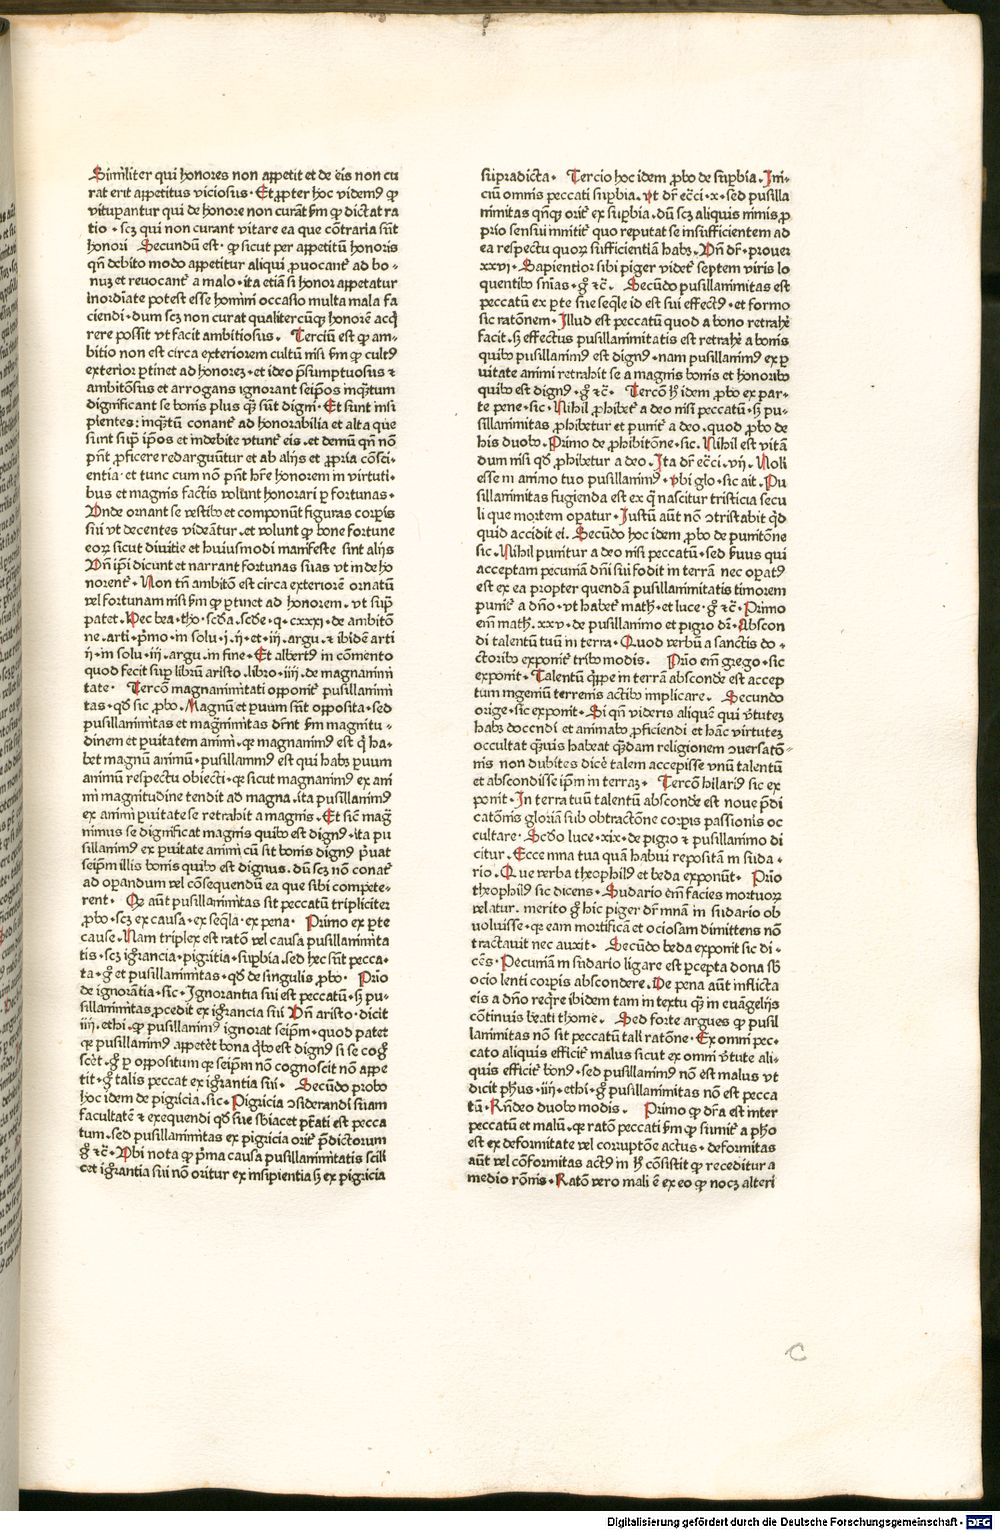 Similiter qui honores non appetit et de eis non cu
rat erit appetitus viciosus · Et ꝓpter hoc videmꝰ ꝙ
vitupantur qui de honore non curāt ẜm ꝙ dictat ra
tio · scꝫ qui non curant vitare ea que cōtraria sūt
honori Secundū est · ꝙ sicut per appetitū honoris
qn̄ debito modo appetitur aliqui ꝓuocant᷑ ad bo-
nuꝫ et reuocant᷑ a malo · ita etiā si honor appetatur
inordīate potest esse homini occasio multa mala fa
ciendi · dum scꝫ non curat qualitercūqꝫ honorē acq̇
rere possit vt facit ambitiosus. Terciū est ꝙ am-
bitio non est circa exteriorem cultū nisi ẜm ꝙ cultꝰ
exterior ꝑtinet ad honoreꝫ · et ideo p̄sumptuosus ⁊
ambitōsus et arrogans ignorant seip̄os inq̄ntum
dignificant se bonis plus q̄ȝ sūt digni · Et sunt insi
pientes: inq̄ntū conant᷑ ad honorabilia et alta que
sunt supͣ ip̄os et indebite vtunt᷑ eis. et demū qn̄ nō
pn̄t ꝓficere redarguūtur et ab alijs et ꝓpria cōsci-
entia · et tunc cum nō pn̄t hr̄e honorem in virtuti-
bus et magnis factis volunt honorari ꝑ fortunas ·
Vnde ornant se vestibꝰ et componūt figuras corꝑis
sui vt decentes videātur. et volunt ꝙ bone fortune
eoꝝ sicut diuitie et huiusmodi manifeste sint alijs
Vn̄ ip̄i dicunt et narrant fortunas suas vt inde ho
norent᷑ · Non tn̄ ambitō est circa exteriorē ornatū
vel fortunam nisi ẜm ꝙ ꝑtinet ad honorem · vt supͣ
patet. Hec bea · tho · scd̄a · scd̄e · q · cxxxi · de ambitō
ne · arti · p̄mo · in solu · i · ij · et · iij · argu · ⁊ ibidem arti
ij · in solu · iij · argu · in fine · Et albertꝰ in cōmento
quod fecit supͣ librū aristo · libro · iiij · de magnanimi
tate · Tercō magnanimitati opponit᷑ pusillanimi
tas · qd̄ sic ꝓbo. Magnū et ꝑuum sunt opposita · sed
pusillanimitas et magnimitas dr̄nt ẜm magnitu-
dinem et ꝑuitatem animi · qꝛ magnanimꝰ est q̇ ha-
bet magnū animū · pusillanimꝰ est qui habꝫ ꝑuum
animū respectu obiecti · qꝛ sicut magnanimꝰ ex ani
mi magnitudine tendit ad magna. ita pusillanimꝰ
ex animi ꝑuitate se retrahit a magnis. Et sic̄ mag̅
nimus se dignificat magnis quibꝰ est dignꝰ · ita pu
sillanimꝰ ex ꝑuitate animi cū sit bonis dignꝰ p̄uat
seip̄m illis bonis quibꝰ est dignus. dū scꝫ nō conat᷑
ad oꝑandum vel cōsequendū ea que sibi compete-
rent · Qꝛ aūt pusillanimitas sit peccatū tripliciter
ꝓbo · scꝫ ex causa · ex seq̄la · ex pena · Primo ex ꝑte
cause. Nam triplex est ratō vel causa pusillanimita
tis · scꝫ ignͣrancia · pigritia · suꝑbia. sed hec sūt pecca-
ta · gͦ et pusillanimitas · qd̄ de singulis ꝓbo · Prīo
de ignorātia · sic · Ignorantia sui est peccatū · ẜꝫ pu-
sillanimitas ꝓcedit ex ignͣrancia sui Vn̄ aristo · dicit
iiij · ethi · ꝙ pusillanimꝰ ignorat seip̄m · quod patet
qꝛ pusillanimꝰ appetēt bona q̇bꝰ est dignꝰ si se cogͦ
scēt · gͦ ꝑ oppositum qꝛ seip̄m nō cognoscit nō appe
tit · gͦ talis peccat ex ignͣrantia sui · Secūdo probo
hoc idem de pigricia · sic · Pigricia ↄsiderandi suam
facultatē ⁊ exequendi qd̄ sue sb̄iacet pt̄ati est pecca
tum. sed pusillanimitas ex pigricia orit᷑ p̄dictorum
gͦ ⁊c̄ · Vbi nota ꝙ p̄ma causa pusillanimitatis scili
cet ignͣrantia sui nō oritur ex insipientia ẜꝫ ex pigricia
supradicta · Tercio hoc idem ꝓbo de suꝑbia. Ini-
ciū omnis peccati suꝑbia. vt dr̄ ecc̄i · x · sed pusilla
nimitas qn̄qꝫ orit᷑ ex suꝑbia. dū scꝫ aliquis nimis ꝓ
prio sensui innitit᷑ quo reputat se insufficientem ad
ea respectu quoꝝ sufficientiā habꝫ. Vn̄ dr̄ · prouer
xxvi · Sapientior sibi piger videt᷑ septem viris lo
quentibꝰ sn̄ias · gͦ ⁊c̄. Secūdo pusillanimitas est
peccatū ex ꝑte sue seq̄le id est sui effectꝰ · et formo
sic ratōnem · Illud est peccatū quod a bono retrahe᷑
facit · ẜꝫ effectus pusillanimitatis est retrahe᷑ a bonis
quibꝰ pusillanimꝰ est dignꝰ · nam pusillanimꝰ ex ꝑ
uitate animi retrahit se a magnis bonis et honoribꝰ
quibꝰ est dignꝰ · gͦ ⁊c̄ · Tercō h̄ idem ꝓbo ex par-
te pene · sic · Nihil ꝓhibet᷑ a deo nisi peccatū · ẜꝫ pu-
sillanimitas ꝓhibetur et punit᷑ a deo. quod ꝓbo de
his duobꝰ. Primo de ꝓhibitōne · sic. Nihil est vitā
dum nisi qd̄ ꝓhibetur a deo. Ita dr̄ ecc̄i · vij · Noli
esse in animo tuo pusillanimꝰ · vbi glo · sic ait. Pu
sillanimitas fugienda est ex q̄ nascitur tristicia secu
li que mortem oꝑatur · Iustū aūt nō ↄtristabit q̇d
quid accidit ei. Secūdo hoc idem ꝓbo de punitōne
sic · Nihil punitur a deo nisi peccatū · sed ẜuus qui
acceptam pecuniā dn̄i sui fodit in terrā nec oꝑatꝰ
est ex ea propter quendā pusillanimitatis timorem
punit᷑ a dn̄o · vt habet᷑ math̄ · et luce · gͦ ⁊c̄ · Primo
em̄ math̄ · xxv · de pusillanimo et pigro dr̄ · Abscon
di talentū tuū in terra · Quod verbū a sanctis do-
ctoribꝰ exponit᷑ tribꝰ modis. Prīo em̄ grego · sic
exponit · Talentū q̇ppe in terrā absconde est accep
tum ingeniū terrenis actibꝰ implicare. Secundo
orige · sic exponit · Si qn̄ videris aliquē qui v̄tutez
habꝫ docendi et animabꝰ ꝓficiendi et hāc virtutez
occultat q̄ȝuis habeat q̄ndam religionem ↄuersatō-
nis non dubites dicē talem accepisse vnū talentū
et abscondisse ip̄m in terraꝫ · Tercō hilariꝰ sic ex
ponit · In terra tuū talentū absconde est noue p̄di
catōnis gloriā sub obtractōne corꝑis passionis oc
cultare · Scd̄o luce · xix · de pigro ⁊ pusillanimo di
citur. Ecce mna tua quā habui repositā in suda-
rio. Que verba theophilꝰ et beda exponūt · Prīo
theophilꝰ sic dicens · Sudario em̄ facies mortuoꝝ
velatur. merito gͦ hic piger dr̄ mnā in sudario ob
voluisse · qꝛ eam mortificāt et ociosam dimittens nō
tractauit nec auxit · Secūdo beda exponit sic di-
cēs · Pecuniā in sudario ligare est ꝑcepta dona sb̄
ocio lenti corꝑis abscondere. De pena aūt inflicta
eis a dn̄o reqͥre ibidem tam in textu q̄ȝ in euāgelijs
cōtinuis beati thome. Sed forte argues ꝙ pusil
lanimitas nō sit peccatū tali ratōne · Ex omni pec-
cato aliquis efficit᷑ malus sicut ex omni v̄tute ali-
quis efficit᷑ bonꝰ · sed pusillanimꝰ nō est malus vt
dicit ph̄us · iiij · ethi · gͦ pusillanimitas nō est pecca
tū · Rn̄deo duobꝰ modis. Primo ꝙ dr̄a est inter
peccatū et malū. qꝛ ratō peccati ẜm ꝙ sumit᷑ a ph̄o
est ex deformitate vel corruptōe actus · deformitas
aūt vel cōformitas actꝰ in h̄ cōsistit ꝙ receditur a
medio rōnis · Ratō vero mali ē ex eo ꝙ nocꝫ alteri
C
Digitalisierung gefördert durch die Deutsche Forschungsgemeinschaft - DFG